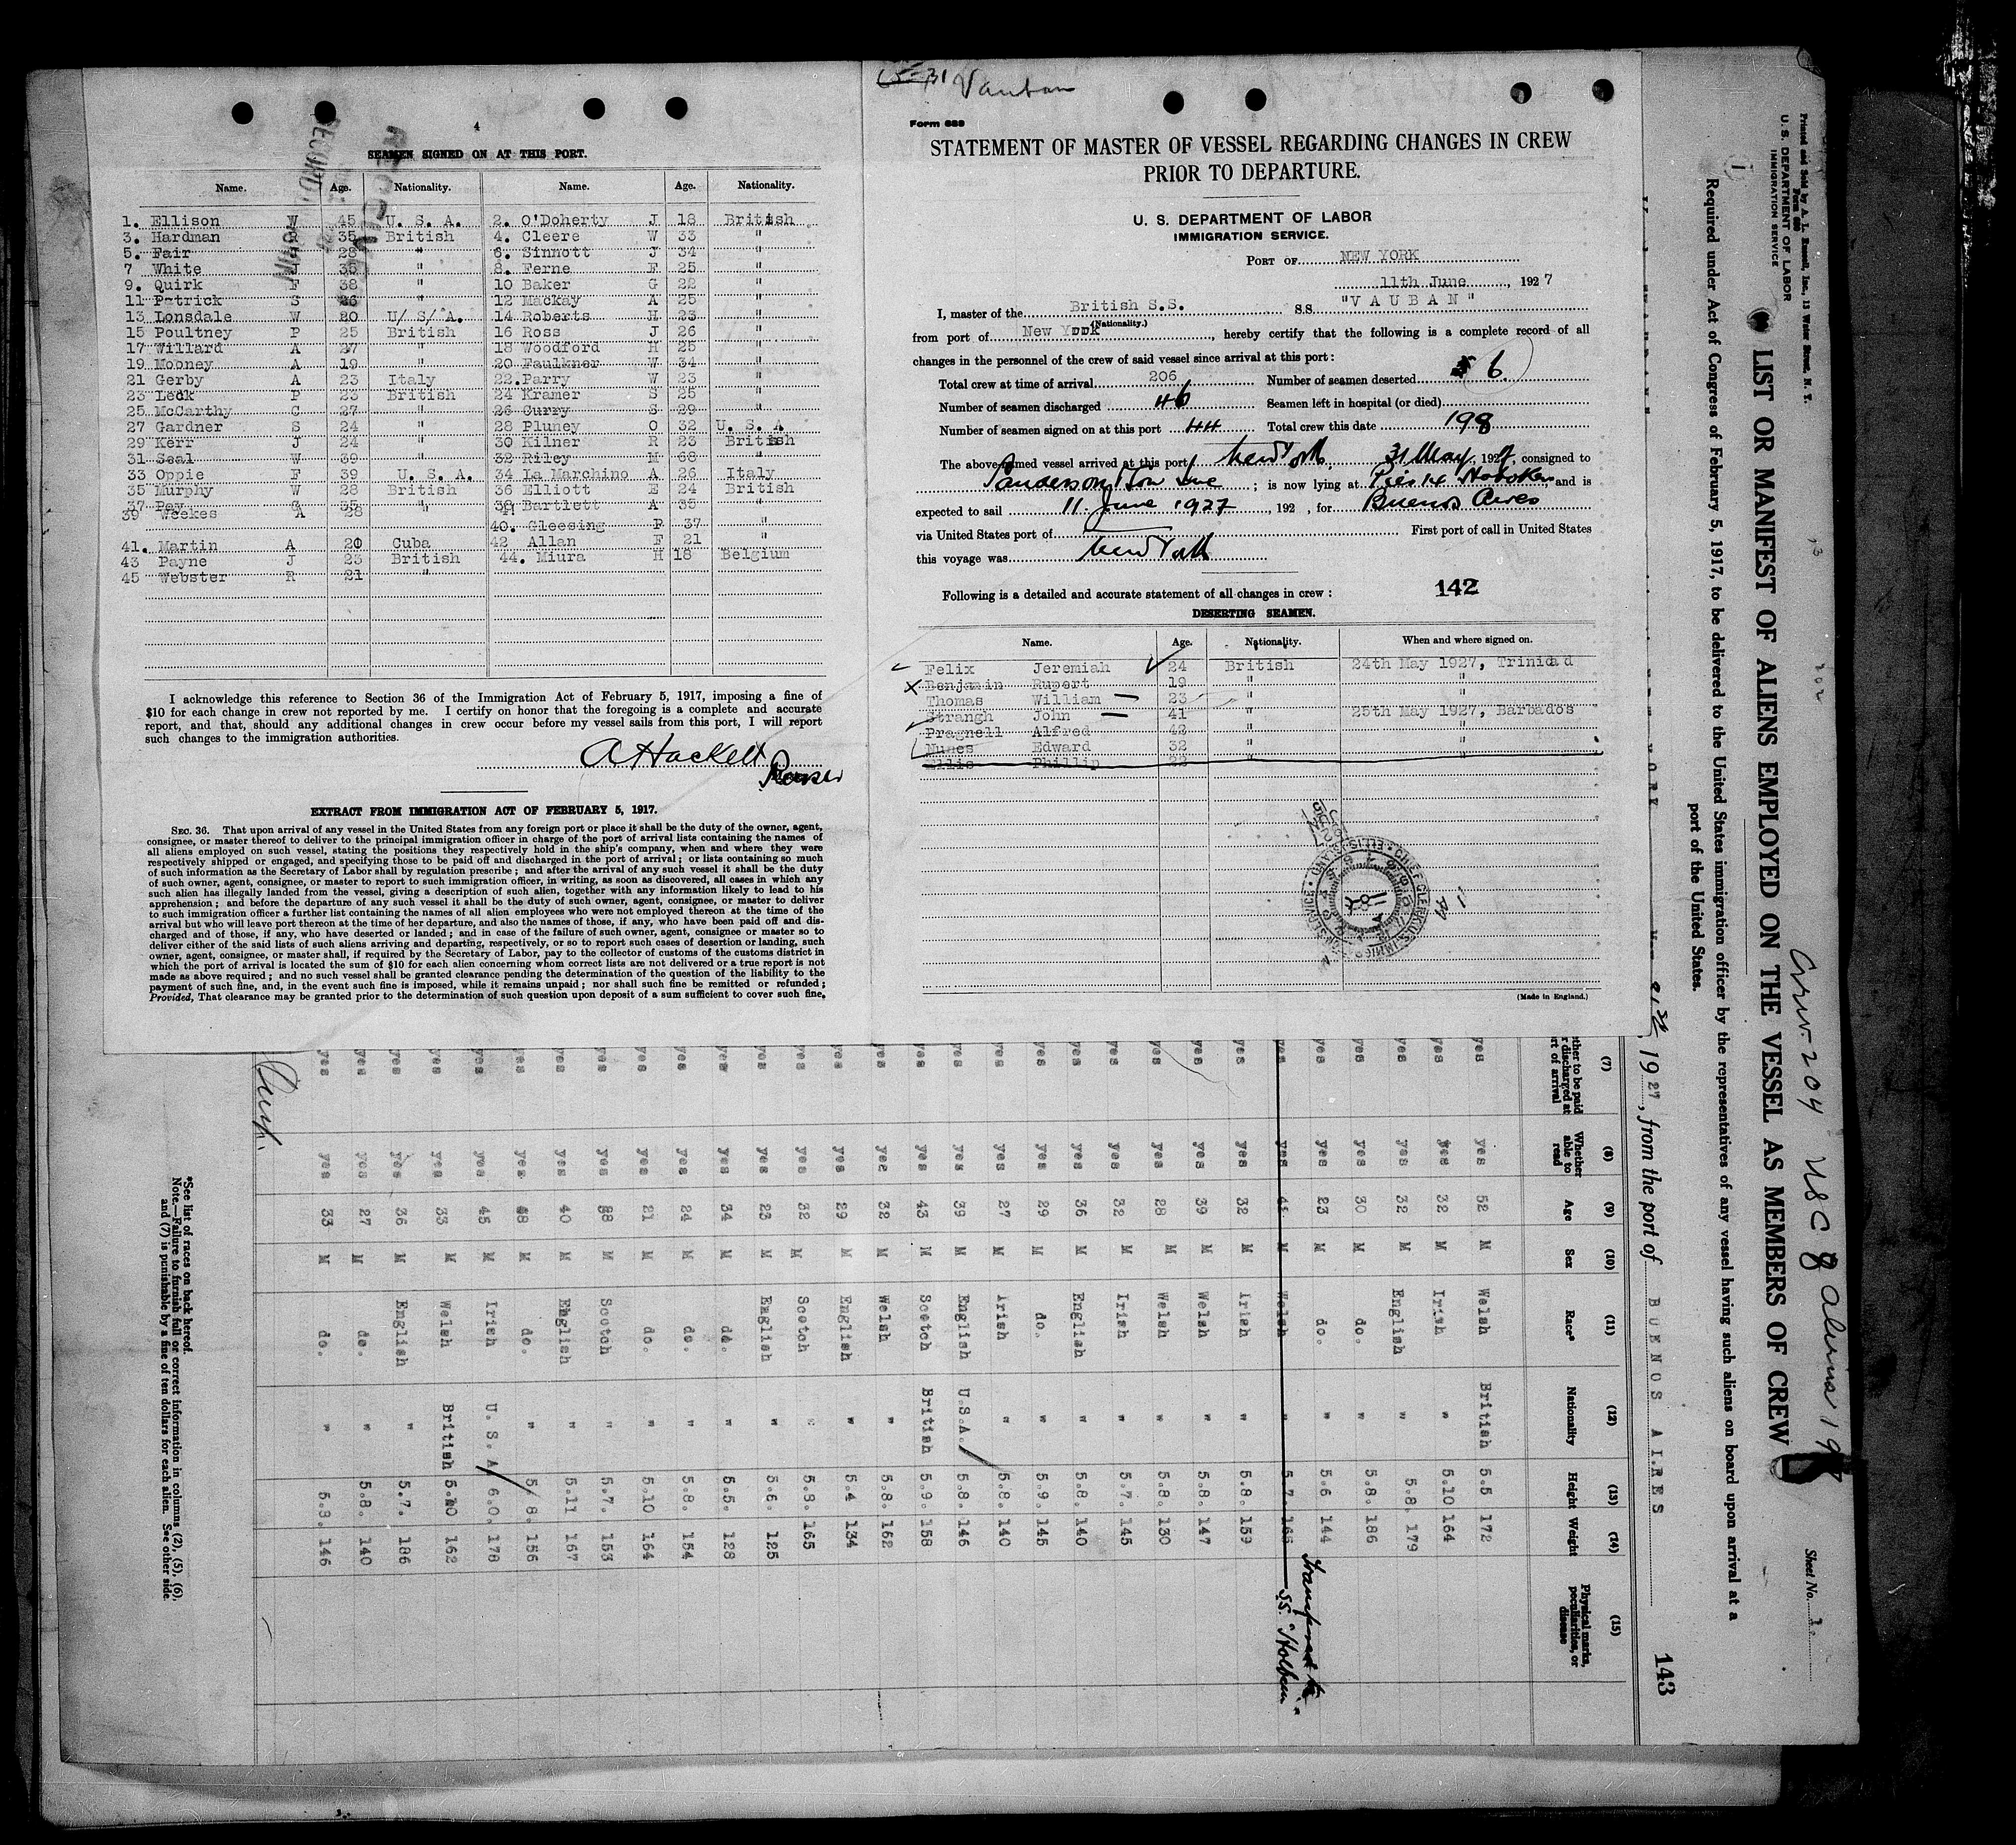 4
SEAMEN SIGNED ON AT THIS PORT.
Name. Age. Nationality. Name. Age. Nationality.
1. Ellison W 45 U. S. A. 2. O'Doherty J 18 British
3. Hardman 35 British 4. Cleere W 33 "
5. Fair 28 " 6. Sinnott J 34 "
7 White 35 " 8. Ferne F 25 "
9. Quirk F 38 " 10 Baker G 22 "
11 Patrick S 26 " 12 Mackay A 25 "
13 Lonsdale W 20 U/S/A. 14 Roberts H 23 "
15 Poultney P 25 British 16 Ross J 26 "
17 Willard A 27 " 18 Woodford H 25 "
19 Mooney A 19 20 Faulkner W 34 "
21 Gerby A 23 Italy 22. Parry W 23 "
23 Leck P 23 British 24 Kramer S 25 "
25 McCarthy C 27 " 26 Curry S 29
27 Gardner S 24 " 28 Pluney O 32 U. S. A
29 Kerr J 24 " 30 Kilner R 23 British
31 Seal W 39 " 32 Riley M 68 "
33 Oppie F 39 U. S. A. 34 La Marchino A 26 Italy
35 Murphy W 28 British 36 Elliott E 24 British
37 35 " Bartlett A 35
39 Weekes A 28
40. Gleesing P 37 "
41. Martin A 20 Cuba 42 Allan F 21 "
43 Payne J 23 British 44. Miura H 18 Belgium
45 Webster R 21 "
I acknowledge this reference to Section 36 of the Immigration Act of February 5, 1917, imposing a fine of
$10 for each change in crew not reported by me. I certify on honor that the foregoing is a complete and accurate
report, and that, should any additional changes in crew occur before my vessel sails from this port, I will report
such changes to the immigration authorities.
A Hackett
EXTRACT FROM IMMIGRATION ACT OF FEBRUARY 5, 1917.
SEC. 36. That upon arrival of any vessel in the United States from any foreign port or place it shall be the duty of the owner, agent,
consignee, or master thereof to deliver to the principal immigration officer in charge of the port of arrival lists containing the names of
all aliens employed on such vessel, stating the positions they respectively hold in the ship's company, when and where they were
respectively shipped or engaged, and specifying those to be paid off and discharged in the port of arrival; or lists containing so much
of such information as the Secretary of Labor shall by regulation prescribe; and after the arrival of any such vessel it shall be the duty
of such owner, agent, consignee, or master to report to such immigration officer, in writing, as soon as discovered, all cases in which any
such alien has illegally landed from the vessel, giving a description of such alien, together with any information likely to lead to his
apprehension; and before the departure of any such vessel it shall be the duty of such owner, agent, consignee, or master to deliver
to such immigration officer a further list containing the names of all alien employees who were not employed thereon at the time of the
arrival but who will leave port thereon at the time of her departure, and also the names of those, if any, who have been paid off and dis-
charged and of those, if any, who have deserted or landed; and in case of the failure of such owner, agent, consignee or master so to
deliver either of the said lists of such aliens arriving and departing, respectively, or so to report such cases of desertion or landing, such
owner, agent, consignee, or master shall, if required by the Secretary of Labor, pay to the collector of customs of the customs district in
which the port of arrival is located the sum of $10 for each alien concerning whom correct lists are not delivered or a true report is not
made as above required; and no such vessel shall be granted clearance pending the determination of the question of the liability to the
payment of such fine, and, in the event such fine is imposed, while it remains unpaid; nor shall such fine be remitted or refunded;
Provided, That clearance may be granted prior to the determination of such question upon deposit of a sum sufficient to cover such fine.
Vauban
Form 689
STATEMENT OF MASTER OF VESSEL REGARDING CHANGES IN CREW
PRIOR TO DEPARTURE.
U. S. DEPARTMENT OF LABOR
IMMIGRATION SERVICE.
PORT OF NEW YORK
11th June, 1927
I, master of the British S.S. SS. "VAUBAN"
(Nationality.)
from port of New York, hereby certify that the following is a complete record of all
changes in the personnel of the crew of said vessel since arrival at this port:
Total crew at time of arrival 206 Number of seamen deserted 6
Number of seamen discharged 46 Seamen left in hospital (or died)
Number of seamen signed on at this port 44 Total crew this date 198
The above-named vessel arrived at this port New York, 31 May, 1927, consigned to
Sanderson & Son Inc; is now lying at Pier 14 Hoboken and is
expected to sail 11 June 1927, 192 , for Buenos Aires
via United States port of First port of call in United States
this voyage was New York
Following is a detailed and accurate statement of all changes in crew: 142
DESERTING SEAMEN.
Name. Age. Nationality. When and where signed on.
Felix Jeremiah 24 British 24th May 1927, Trinidad
Benjamin Rupert 19 " "
Thomas William 23 " "
Strangh John 41 " 25th May 1927, Barbados
Pragnell Alfred 42 " "
Nunes Edward 32 " "
Ellis Phillip 22 "
(Made in England.)
Printed and Sold by A. L. Russell, Inc., 12 Water Street, N. Y.
Form 680
U. S. DEPARTMENT OF LABOR
IMMIGRATION SERVICE
Arriv. 204 USC 8 aliens 198
Sheet No. 1
LIST OR MANIFEST OF ALIENS EMPLOYED ON THE VESSEL AS MEMBERS OF CREW
Required under Act of Congress of February 5, 1917, to be delivered to the United States immigration officer by the representatives of any vessel having such aliens on board upon arrival at a
port of the United States.
1927, from the port of BUENOS AIRES 143
(7) (8) (9) (10) (11) (12) (13) (14) (15)
Whether able to read Age Sex Race* Nationality Height Weight Physical marks, peculiarities, or disease
yes yes 52 M Welsh British 5.5 172
yes yes 32 M Irish " 5.10 164
yes yes 32 M English " 5.8. 179
yes yes 30 M do. " 5.8. 186
yes yes 23 M do. " 5.6 144
yes yes 41 M Welsh " 5.7. 165 Transferred to SS. "Holbein"
yes yes 32 M Irish " 5.8. 159
yes yes 39 M Welsh " 5.8. 147
yes yes 28 M Welsh " 5.8. 130
yes yes 32 M Irish " 5.7. 145
yes yes 36 M English " 5.8. 140
yes yes 29 M do. " 5.9. 145
yes yes 27 M Irish " 5.8. 140
yes yes 39 M English U.S.A. 5.8. 146
yes yes 43 M Scotch British 5.9. 158
yes yes 32 M Welsh " 5.8. 162
yes yes 29 M English " 5.4 134
yes yes 32 M Scotch " 5.8. 165
yes yes 23 M English " 5.6. 125
yes yes 34 M do. " 5.5. 128
yes yes 24 M do. " 5.8. 154
yes yes 21 M do. " 5.10 164
yes yes 28 M Scotch " 5.7. 153
yes yes 40 M English " 5.11 167
yes yes 48 M do. " 5/8. 156
yes yes 45 M Irish U. S. A 6.0. 178
yes yes 33 M Welsh British 5.10 162
yes yes 36 M English " 5.7. 186
yes yes 27 M do. " 5.8. 140
yes yes 33 M do. " 5.8. 146
*See list of races on back hereof.
Note.—Failure to furnish full or correct information in columns (2), (5), (6),
and (7) is punishable by a fine of ten dollars for each alien. See other side.